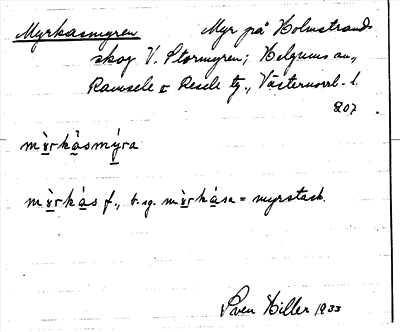 Myrkasmyren Myr på Holmstrands
skog V. Stormyren; Helgums sn,
Ramsele o Resele tg., Västernorrl. l.
807
mỳrkàsmýra
mỳrkás f., b. sg. mỳrkása = myrstack.
Sven Hiller 1933